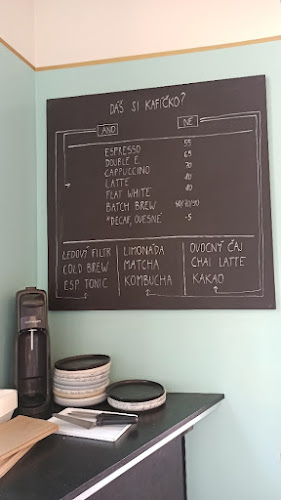 DÁŠ SI KAFÍČKO?
ANO NE
ESPRESSO 55
DOUBLE E. 65
CAPPUCCINO 70
LATTE
FLAT WHITE
BATCH BREW
*DECAF, OVESNÉ -5
LEDOVÝ FILTR LIMONÁDA OVOCNÝ ČAJ
COLD BREW MATCHA CHAI LATTE
ESP TONIC KOMBUCHA KAKAO